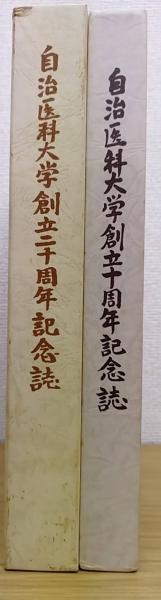 自治医科大学創立二十周年記念誌
自治医科大学創立十周年記念誌